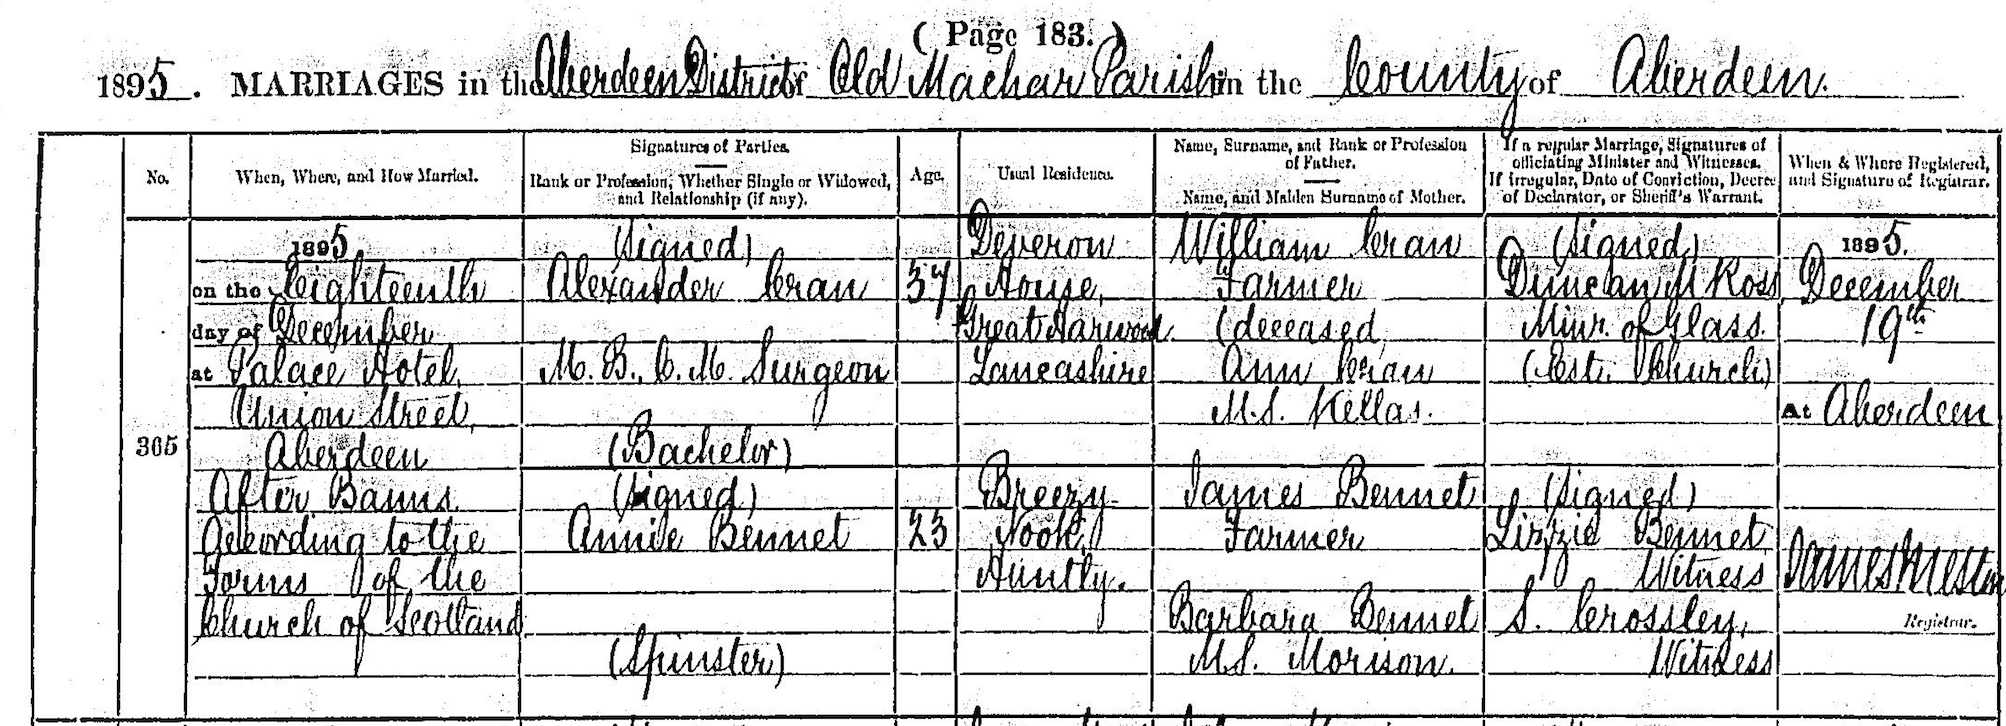 ( Page 183. )
1895. MARRIAGES in the Aberdeen District of Old Machar Parish in the County of Aberdeen.
No.
When, Where, and How Married.
Signatures of Parties.
Rank or Profession, Whether Single or Widowed,
and Relationship (if any).
Age.
Usual Residence.
Name, Surname, and Rank or Profession
of Father.
Name, and Maiden Surname of Mother.
If a regular Marriage, Signatures of
officiating Minister and Witnesses.
If Irregular, Date of Conviction, Decree
of Declarator, or Sheriff's Warrant.
When & Where Registered,
and Signature of Registrar.
365
1895
on the Eighteenth
day of December
at Palace Hotel,
Union Street,
Aberdeen
After Banns
According to the
Forms of the
Church of Scotland
(Signed)
Alexander Cran
M.B., C.M. Surgeon
(Bachelor)
(Signed)
Annie Bennet
(Spinster)
37
23
Deveron
House,
Great Harwood
Lancashire
Breezy
Nook,
Huntly.
William Cran
Farmer
(deceased)
Ann Cran
M.S. Kellas.
James Bennet
Farmer
Barbara Bennet
M.S. Morison.
(Signed)
Duncan M Ross,
Minr. of Glass.
(Est. Church)
(Signed)
Lizzie Bennet
Witness
S. Crossley,
Witness
1895.
December
19th
At Aberdeen
James Meston
Registrar.